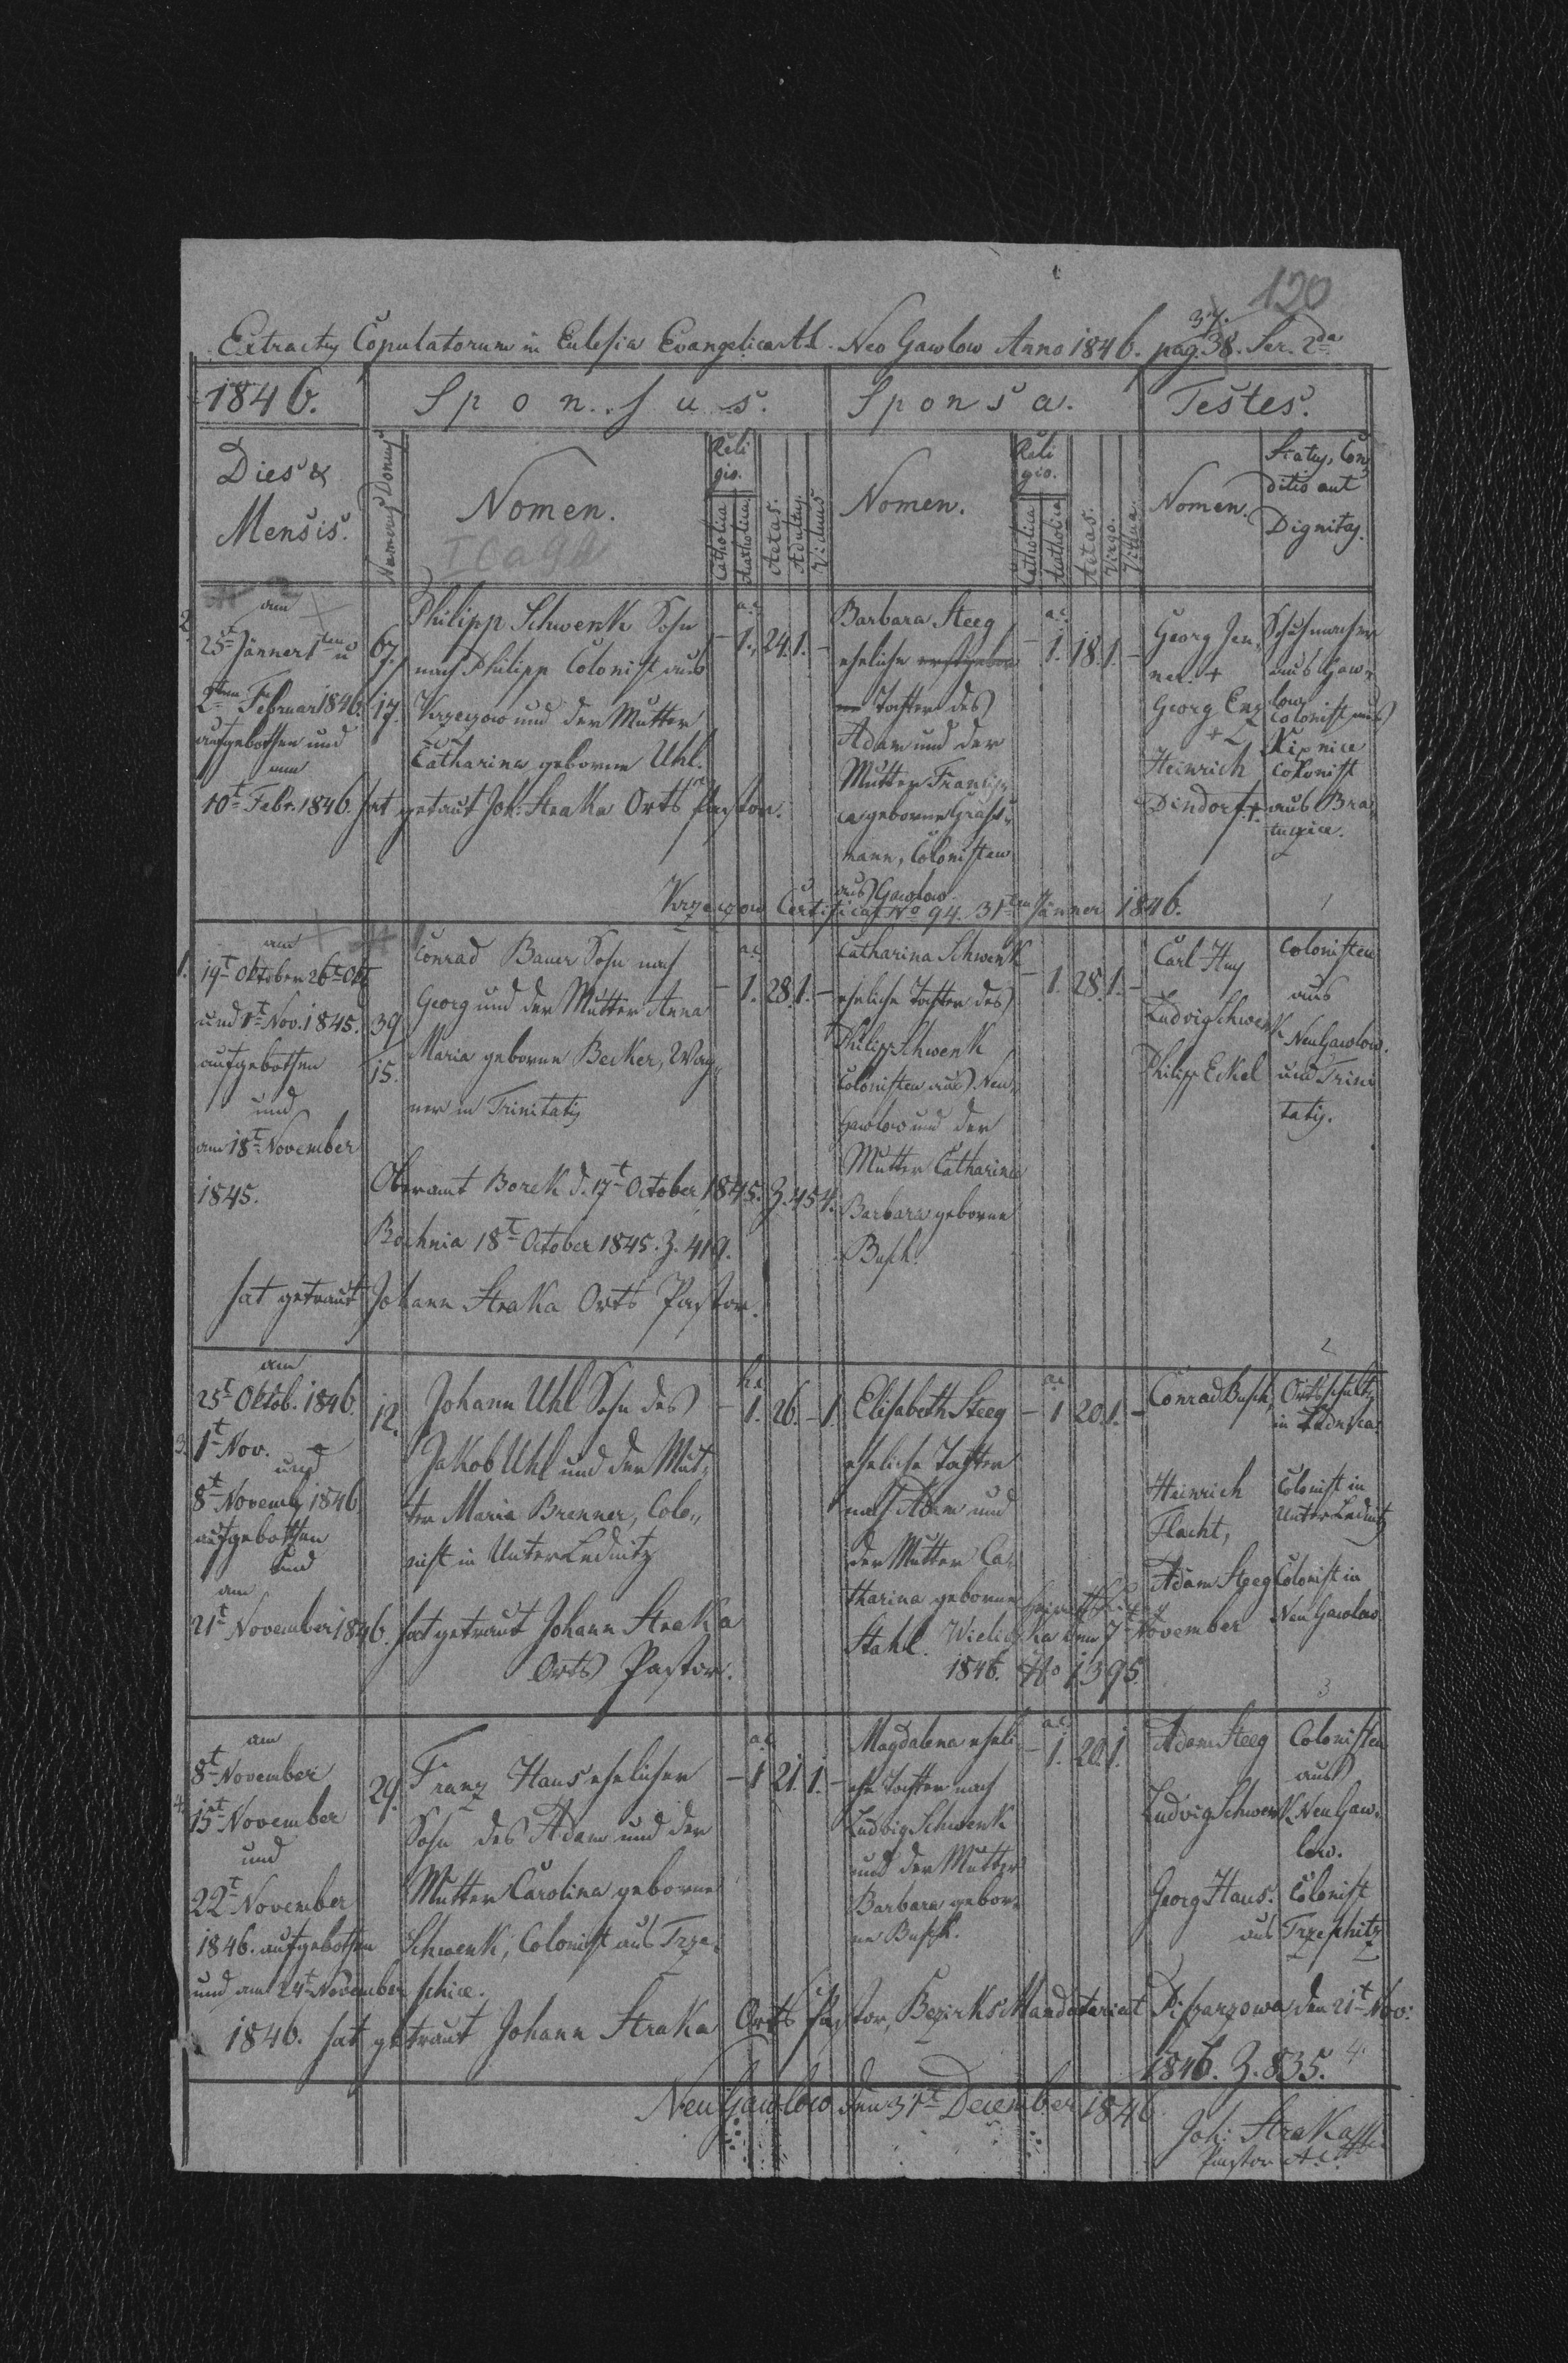 120
37.
Extractus Copulatorum in Eclesia Evangelica A.C. Neo Gawlow Anno 1846. pag. 38. Ser. 2da
1846.
Sponsus.
Sponsa.
Testes.
Dies &
Mensis.
Numerus Domus
Nomen.
Reli
gio.
Catholica
Acatholica
Aetas.
Adultus
Viduus
Nomen.
Reli
gio.
Catholica
Acatholica
Aetas.
Virgo.
Vidua
Nomen.
Status, Con
ditio aut
Dignitas.
2.
am
25t Jänner 1ten u
2ten Februar 1846.
aufgebothen und
am
10t Febr. 1846. hat getraut Joh: Straka Orts Pastor.
67.
17.
Philipp Schwenk Sohn
nach Philipp Colonist aus
Krzeczow und der Mutter
Catharina geborne Uhl.
a.c.
- 1. 24. 1. -
Barbara Steeg
eheliche erstgebor
ne Tochter des
Adam und der
Mutter Francis,
ca geborne Graf,
mann, Colonisten
aus Gawlow.
a.c.
- 1. 18. 1. -
Georg Jen,
ner. +
Georg Enz
+
Heinrich
Dindorf. +
Schuhmacher
aus Gaw,
low
Colonist aus
Kipnice
Colonist
aus Bra,
tucice.
Krzeczow Certificat No 94. 31ten Jänner 1846.
1
1.
am
19t Oktober 26t Okt
und 1t Nov. 1845.
aufgebothen
und
am 18t November
1845.
39
15.
Conrad Bauer Sohn nach
Georg und der Mutter Anna
Maria geborne Becker, Wag,
ner in Trinitatis
Oberamt Borek d. 17t October 1845. Z. 454.
Bochnia 18t October 1845. Z. 419.
hat getraut Johann Straka Orts Pastor.
a.c.
- 1. 28. 1. -
Catharina Schwenk
eheliche Tochter des
Philipp Schwenk
Colonisten aus Neu,
Gawlow und der
Mutter Catharina
Barbara geborne
Busch.
- 1. 28. 1. -
Carl Huy
Ludvig Schwenk
Philipp Eckel
Colonisten
aus
Neu Gawlow.
und Trini
tatis.
2
3.
am
25t Oktob. 1846.
1t Nov.
und
8t Novemb 1846.
aufgebothen
und
am
21t November 1846. hat getraut Johann Straka
Orts Pastor.
12.
Johann Uhl Sohn des
Jakob Uhl und der Mut,
ter Maria Brenner, Colo,,
nist in Unter Lednitz
h.c.
- 1. 26. - 1.
Elisabeth Steeg
eheliche Tochter
nach Adam und
der Mutter Ca,
tharina geborne
Stahl.
Wieliczka den 7t November
1846. No 1395.
a.c.
- 1 20. 1. -
Conrad Busch,
Heinrich
Flacht,
Adam Steeg
Ortsschultz
in
Colonist in
Unter Lednitz
Colonist in
Neu Gawlow
3
4.
am
8t November
15t November
und
22t November
1846. aufgebothen
und am 24t November
1846. hat getraut Johann Straka Orts Pastor, Bezirks Mandatariat den 21t Nov:
1846. Z. 835.
4.
29.
Franz Haus ehelicher
Sohn des Adam und der
Mutter Carolina geborne
Schwenk, Colonist aus Trze,
schice.
a.c.
- 1 21. 1. -
Magdalena eheli
che Tochter nach
Ludvig Schwenk
und der Mutter
Barbara gebor,
ne Busch.
a.c.
- 1. 20. 1.
Adam Steeg
Ludvig Schwenk
Georg Haus.
Colonisten
aus
Neu Gaw,
low.
Colonist
aus Trzeschitz
Neu Gawlow den 31t December 1846
Joh: Straka
Pastor A.C.